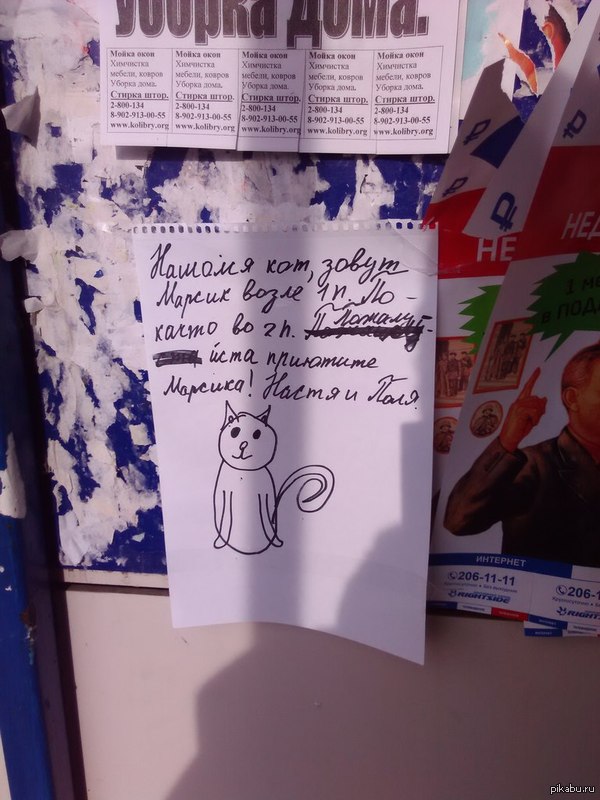 Уборка дома.
Мойка окон Мойка окон Мойка окон Мойка окон Мойка окон
Химчистка Химчистка Химчистка Химчистка Химчистка
мебели, ковров мебели, ковров мебели, ковров мебели, ковров мебели, ковров
Уборка дома. Уборка дома. Уборка дома. Уборка дома. Уборка дома.
Стирка штор. Стирка штор. Стирка штор. Стирка штор. Стирка штор.
2-800-134 2-800-134 2-800-134 2-800-134 2-800-134
8-902-913-00-55 8-902-913-00-55 8-902-913-00-55 8-902-913-00-55 8-902-913-00-55
www.kolibry.org www.kolibry.org www.kolibry.org www.kolibry.org www.kolibry.org
Нашолся кот, зовут
Марсик возле 1п. По-
качто во 2п. Пожалу-
йста приютите
Марсика! Настя и Поля
НЕ
НЕД
1 м
в ПОДА
ИНТЕРНЕТ
206-11-11
206-1
RIGHTSIDE
RIGHTS
pikabu.ru